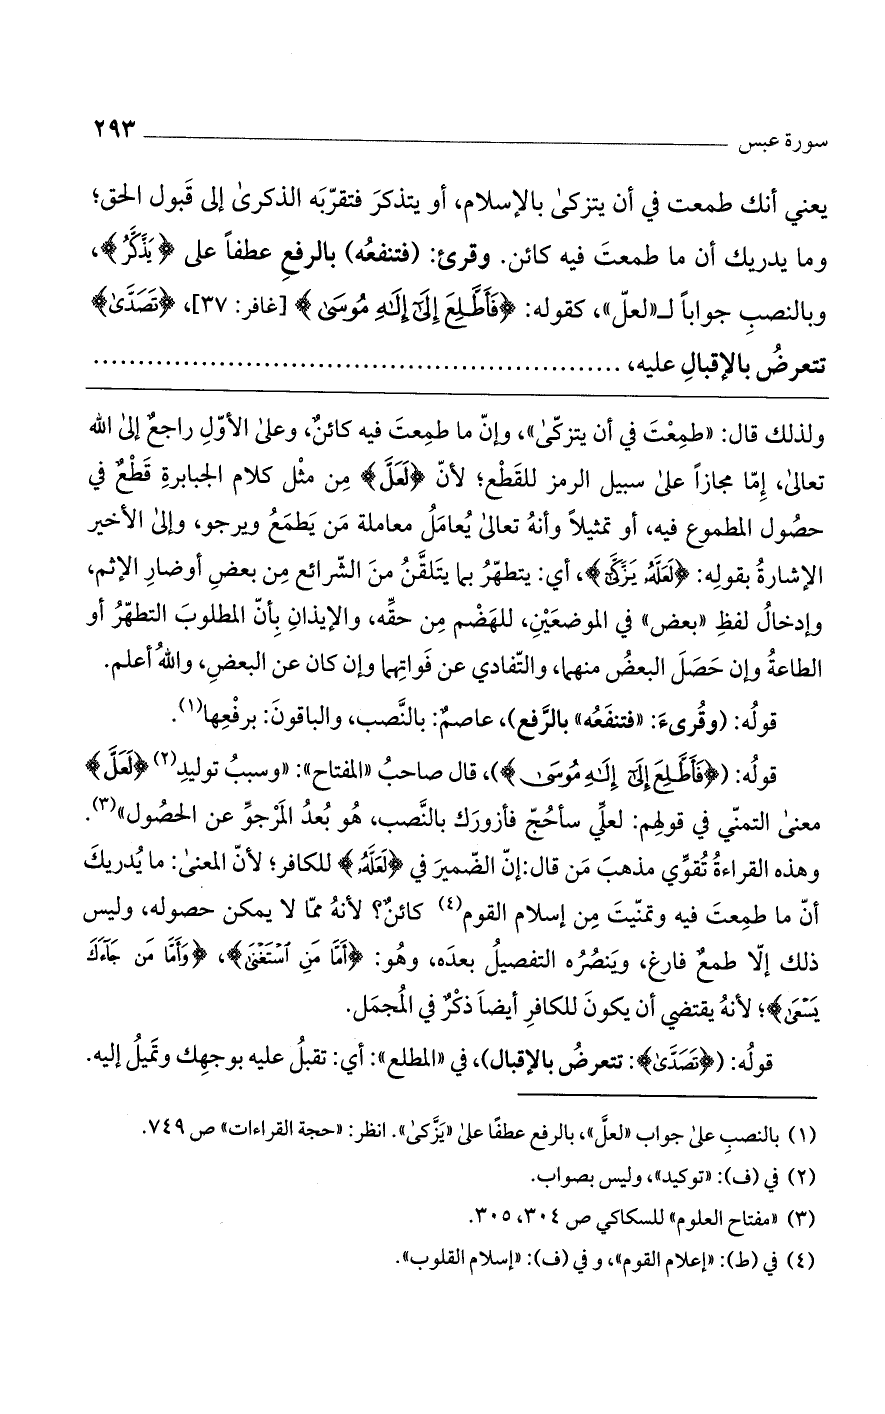 سورة عبس ٢٩٣
يعني أنك طمعت في أن يتزكىٰ بالإسلام، أو يتذكرَ فتقرّبَه الذكرىٰ إلى قَبول الحق؛
وما يدريك أن ما طمعتَ فيه كائن. وقرئ: (فتنفعُه) بالرفعِ عطفاً على ﴿يَذَّكَّرُ﴾،
وبالنصبِ جواباً لـ«لعلّ»، كقوله: ﴿فَأَطَّلِعَ إِلَىٰٓ إِلَٰهِ مُوسَىٰ﴾ [غافر: ٣٧]، ﴿تَصَدَّىٰ﴾
تتعرضُ بالإقبالِ عليه، ............................................................
ولذلك قال: «طمِعْتَ في أن يتزكّىٰ»، وإنّ ما طمِعتَ فيه كائنٌ، وعلىٰ الأوّلِ راجعٌ إلىٰ الله
تعالىٰ، إمّا مجازاً علىٰ سبيل الرمز للقَطْع؛ لأنّ ﴿لَعَلَّ﴾ مِن مثْل كلام الجبابرةِ قَطْعٌ في
حصُول المطموع فيه، أو تمثيلاً وأنهُ تعالىٰ يُعامَلُ معاملة مَن يَطمَعُ ويرجو، وإلىٰ الأخير
الإشارةُ بقولِه: ﴿لَعَلَّهُۥ يَزَّكَّىٰ﴾، أي: يتطهّرُ بما يتَلقَّنُ منَ الشّرائع مِن بعضِ أوضارِ الإثم،
وإدخالُ لفظِ «بعض» في الموضعَيْنِ، للهَضْم مِن حقِّه، والإيذانِ بأنّ المطلوبَ التطهّرُ أو
الطاعةُ وإن حَصَلَ البعضُ منهما، والتّفادي عن فَواتِهما وإن كان عن البعضِ، واللهُ أعلم.
قولُه: (وقُرىءَ: «فتنفَعُه» بالرَّفع)، عاصمٌ: بالنَّصب، والباقونَ: برفْعِها(١).
قولُه: (﴿فَأَطَّلِعَ إِلَىٰٓ إِلَٰهِ مُوسَىٰ﴾)، قال صاحبُ «المفتاح»: «وسببُ توليدِ(٢) ﴿لَعَلَّ﴾
معنىٰ التمنّي في قولهِم: لعلِّي سأحُجّ فأزورَك بالنَّصب، هُو بُعدُ المَرْجوِّ عن الحصُول»(٣).
وهذه القراءةُ تُقوِّي مذهبَ مَن قال: إنّ الضّميرَ في ﴿لَعَلَّهُۥ﴾ للكافر؛ لأنّ المعنىٰ: ما يُدريكَ
أنّ ما طمِعتَ فيه وتمنّيتَ مِن إسلام القوم(٤) كائنٌ؟ لأنهُ ممّا لا يمكن حصوله، وليس
ذلك إلّا طمعٌ فارغ، ويَنصُرُه التفصيلُ بعدَه، وهُو: ﴿أَمَّا مَنِ ٱسْتَغْنَىٰ﴾، ﴿وَأَمَّا مَن جَآءَكَ
يَسْعَىٰ﴾؛ لأنهُ يقتضي أن يكونَ للكافرِ أيضاً ذكْرٌ في المُجمَل.
قولُه: (﴿تَصَدَّىٰ﴾: تتعرضُ بالإقبال)، في «المطلع»: أي: تقبلُ عليه بوجهِك وتميلُ إليه.
(١) بالنصبِ علىٰ جواب «لعلَّ»، بالرفع عطفًا علىٰ «يَزَّكىٰ». انظر: «حجة القراءات» ص ٧٤٩.
(٢) في (ف): «توكيد»، وليس بصواب.
(٣) «مفتاح العلوم» للسكاكي ص ٣٠٤، ٣٠٥.
(٤) في (ط): «إعلام القوم»، و في (ف): «إسلام القلوب».